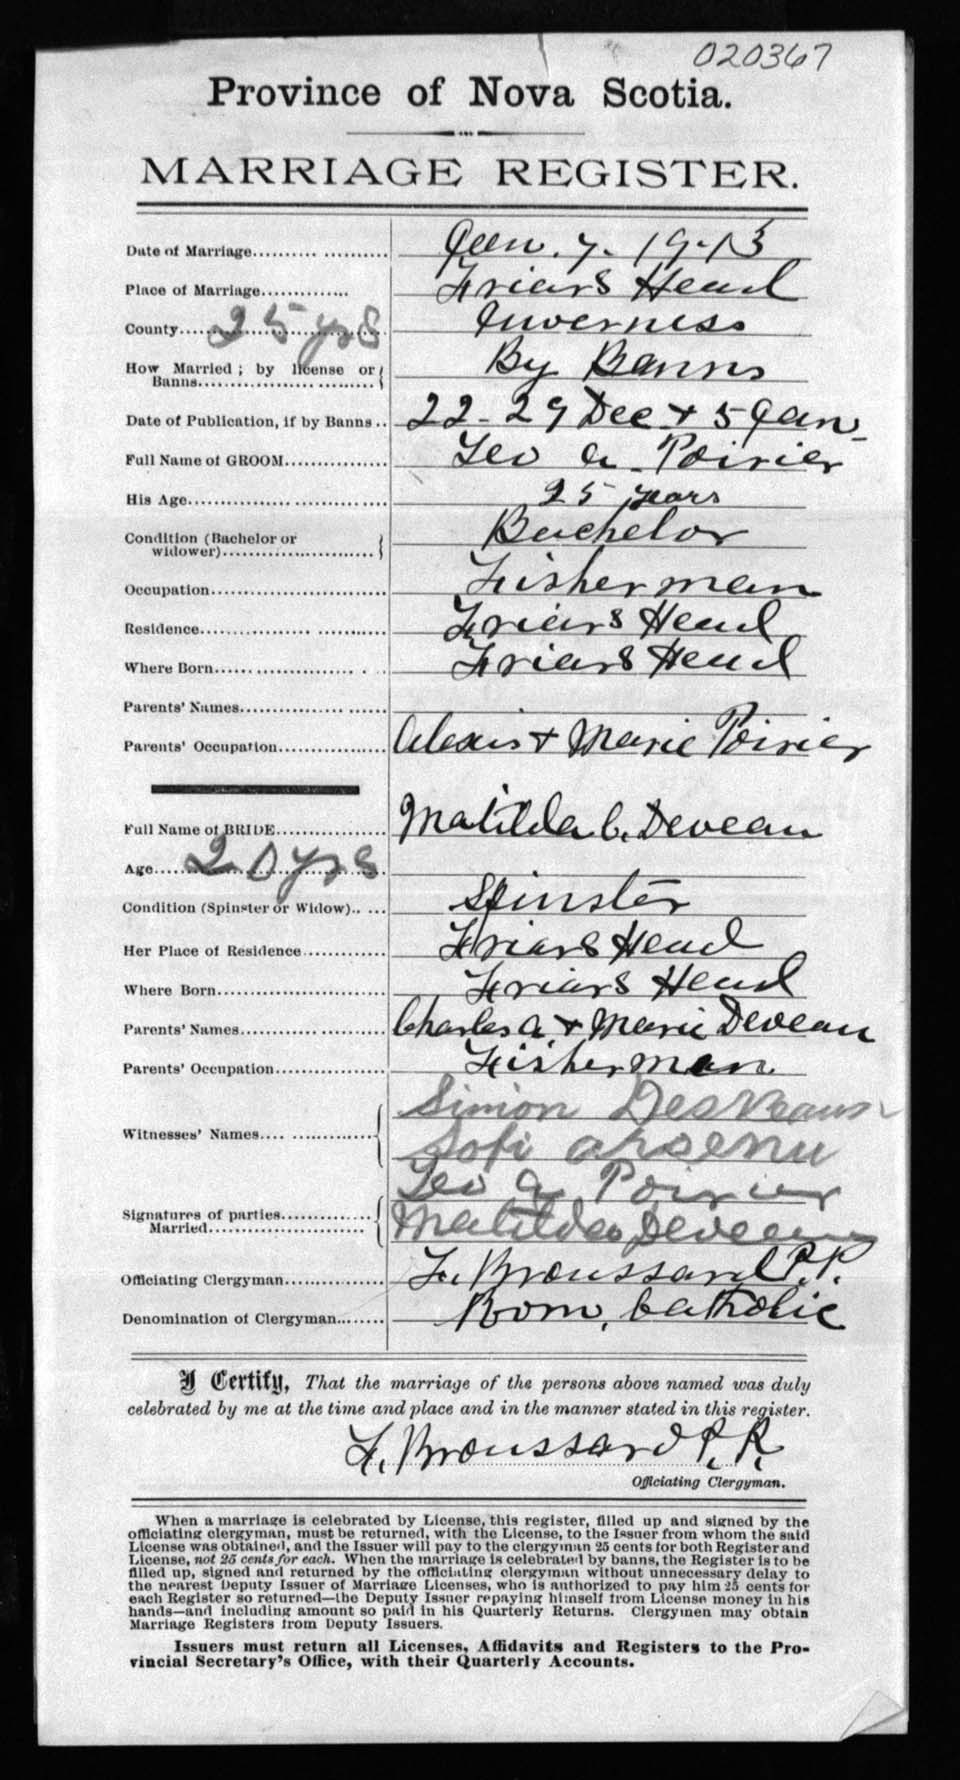 020367
Province of Nova Scotia.
MARRIAGE REGISTER.
Date of Marriage.......... ........... Jan. 7. 1913
Place of Marriage.............. Friars Head
County........................ 25 yrs Inverness
How Married ; by license or
Banns.................... ........... By Banns
Date of Publication, if by Banns .. 22 - 29 Dec + 5 Jan
Full Name of GROOM................. Leo A. Poirier
His Age................................. 25 years
Condition (Bachelor or
widower)......................... Bachelor
Occupation............................. Fisherman
Residence.................. ........... Friars Head
Where Born........................ . .. Friars Head
Parents' Names............... .........
Parents' Occupation.................. Alexis + Marie Poirier
Full Name of BRIDE.................. Matilda C. Deveau
Age........................................ 20 yrs
Condition (Spinster or Widow).. .... Spinster
Her Place of Residence............. Friars Head
Where Born............................ Friars Head
Parents' Names............ ........... Charles A + Marie Deveau
Parents' Occupation.................. Fisherman
Witnesses' Names.... ............... Simon DesVeaux
Sofi arsenu
Signatures of parties............... Leo A Poirier
Married.......................... Matilda Deveau
Officiating Clergyman............... F. Broussard P.P.
Denomination of Clergyman........ Rom. Catholic
I Certify, That the marriage of the persons above named was duly
celebrated by me at the time and place and in the manner stated in this register.
F. Broussard P.P.
Officiating Clergyman.
When a marriage is celebrated by License, this register, filled up and signed by the
officiating clergyman, must be returned, with the License, to the Issuer from whom the said
License was obtained, and the Issuer will pay to the clergyman 25 cents for both Register and
License, not 25 cents for each. When the marriage is celebrated by banns, the Register is to be
filled up, signed and returned by the officiating clergyman without unnecessary delay to
the nearest Deputy Issuer of Marriage Licenses, who is authorized to pay him 25 cents for
each Register so returned—the Deputy Issuer repaying himself from License money in his
hands—and including amount so paid in his Quarterly Returns. Clergymen may obtain
Marriage Registers from Deputy Issuers.
Issuers must return all Licenses, Affidavits and Registers to the Pro-
vincial Secretary's Office, with their Quarterly Accounts.